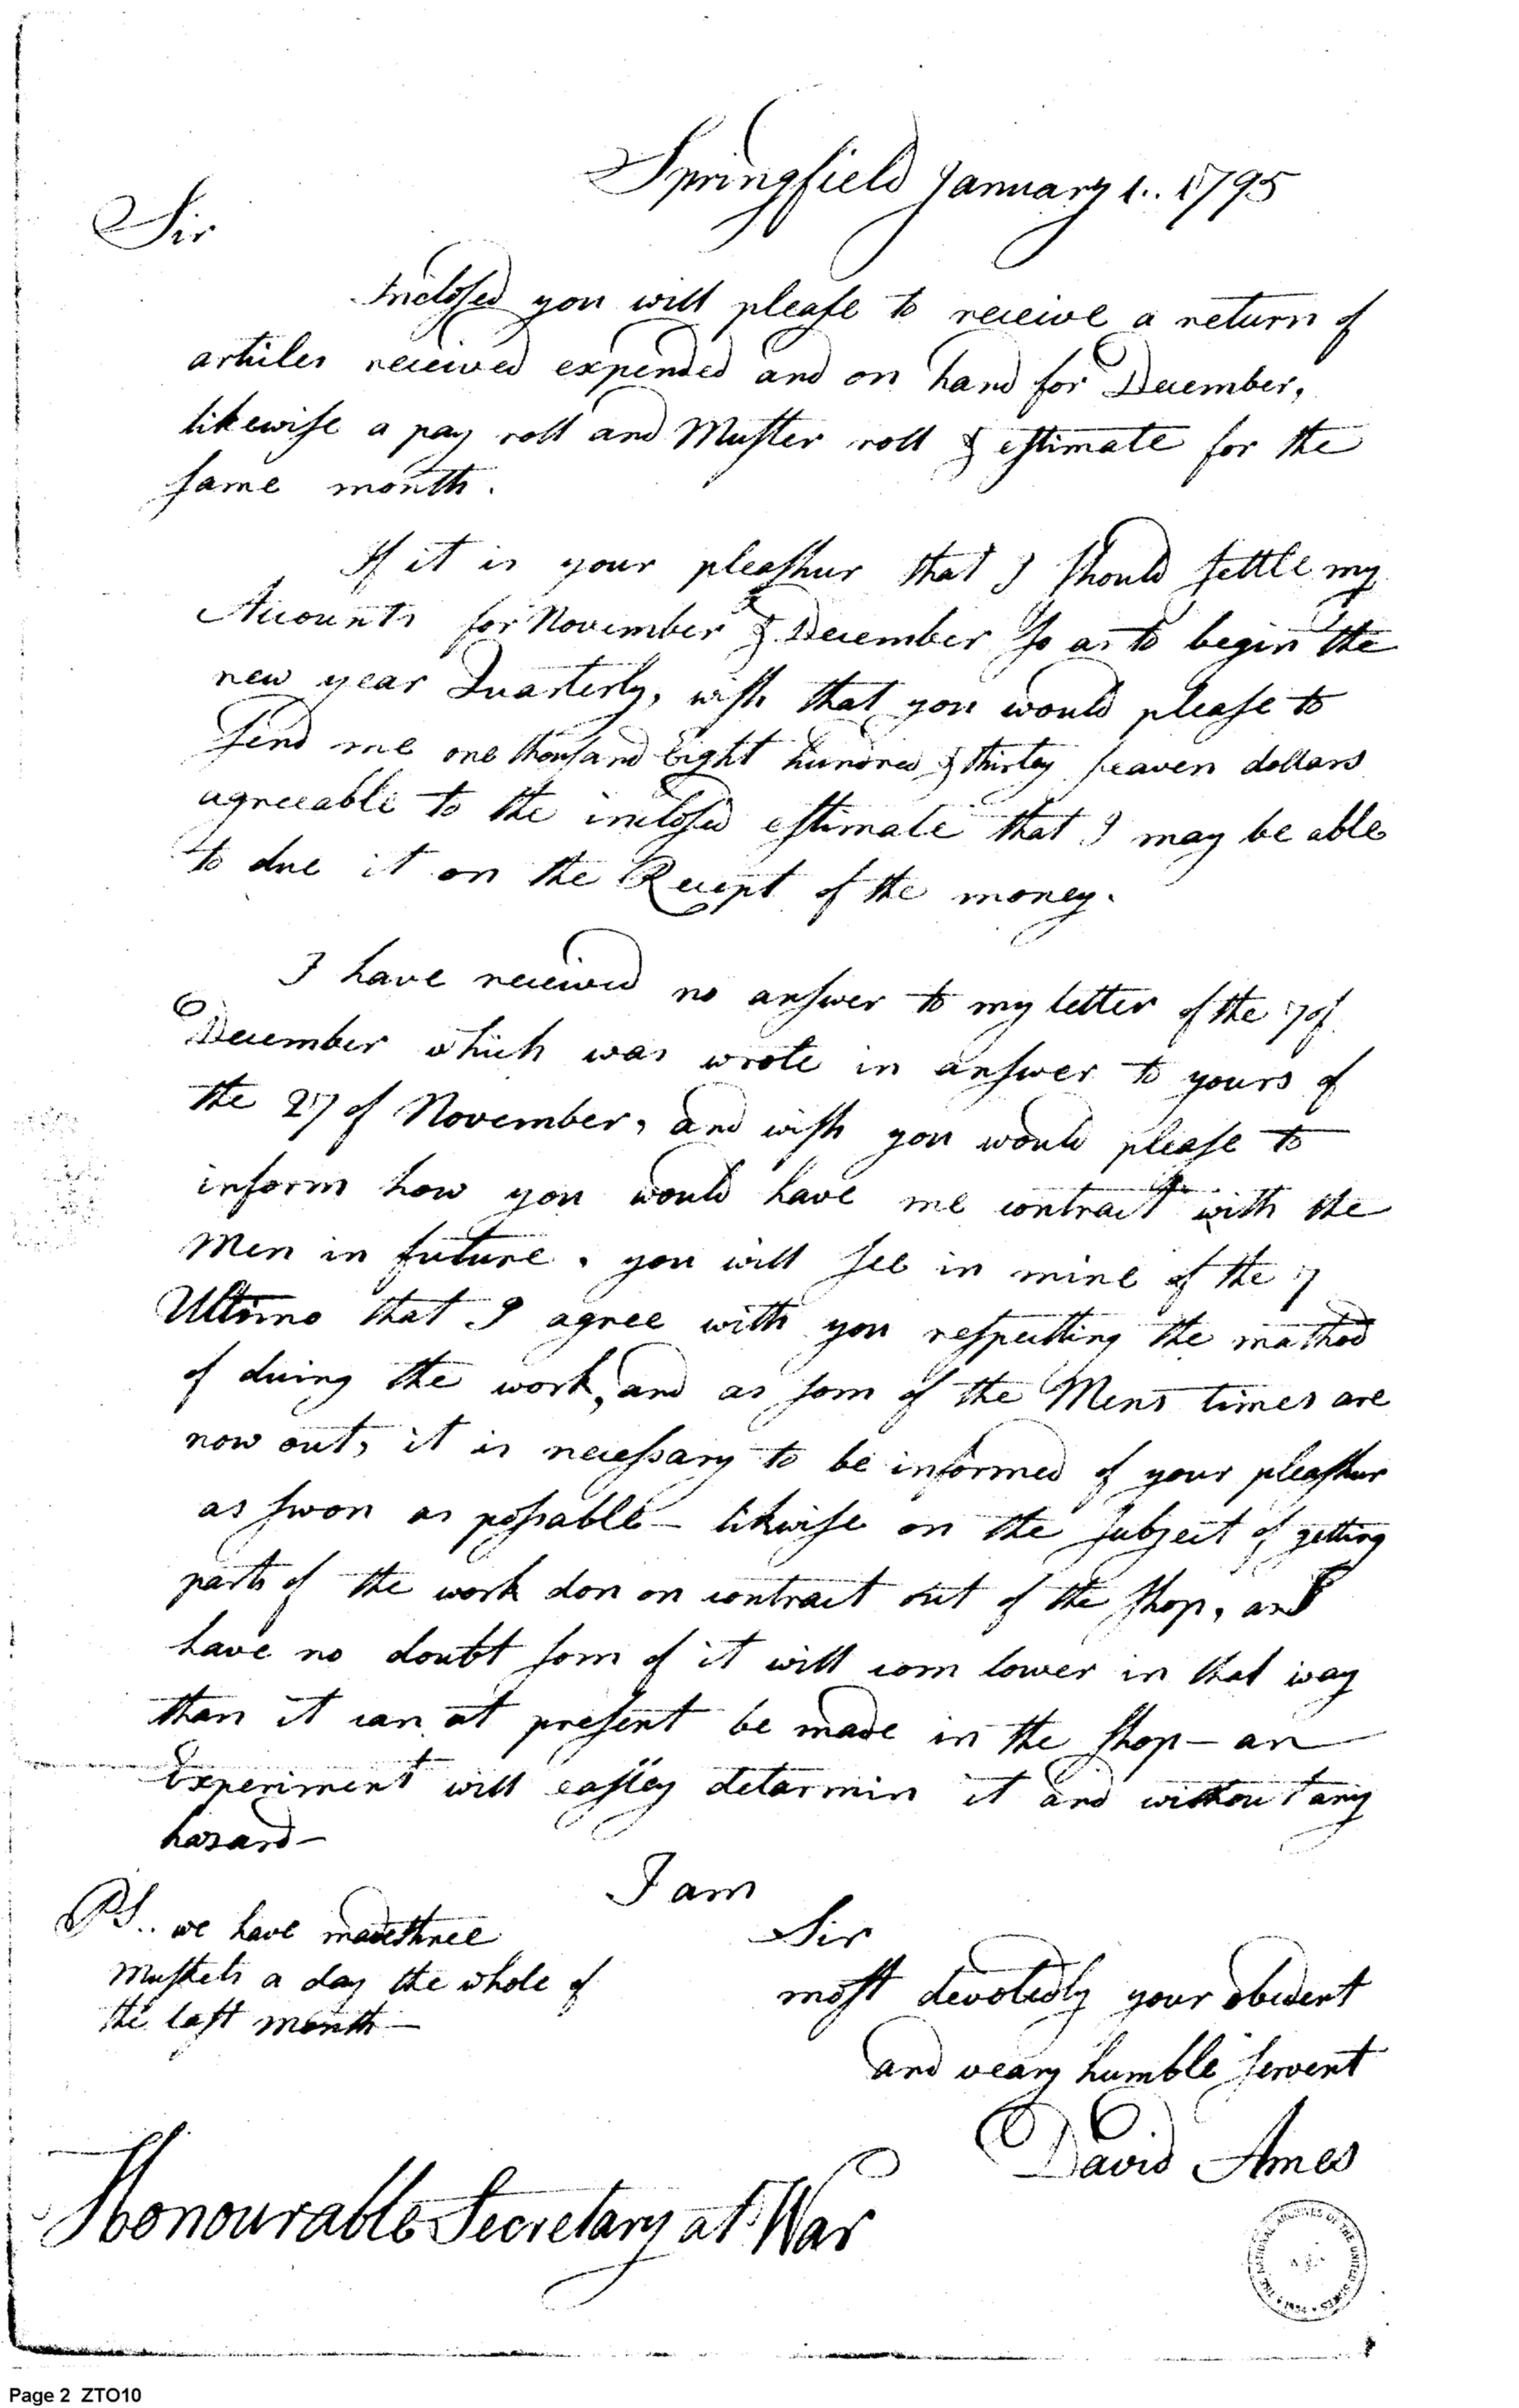 Springfield January 1.. 1795
Sir
Inclosed you will please to receive a return of
articles received expended and on hand for December,
likewise a pay roll and Muster roll & estimate for the
same month.
If it is your pleashur that I should settle my
Accounts for November & December so as to begin the
new year Quarterly, wish that you would please to
send me one thousand Eight hundred & thirty seaven dollars
agreeable to the inclosed estimate that I may be able
to due it on the Recept of the money.
I have received no answer to my letter of the 7 of
December which was wrote in answer to yours of
the 27 of November, and wish you would please to
inform how you would have me contract with the
Men in future. you will see in mine of the 7
Ultimo that I agree with you respectting the mathod
of duing the work, and as som of the Mens times are
now out, it is necessary to be informed of your pleashur
as swon as possable – likwise on the subject of getting
parts of the work don on contract out of the shop, and
have no doubt som of it will com lower in that way
than it can at present be made in the shop – an
Experiment will easiley detarmin it and without any
hazard –
I am
Sir
most devotedly your obedent
and veary humble servent
David Ames
PS.. we have made three
muskets a day the whole of
the last month –
Honourable Secretary at War
THE NATIONAL ARCHIVES OF THE UNITED STATES
Page 2 ZTO10